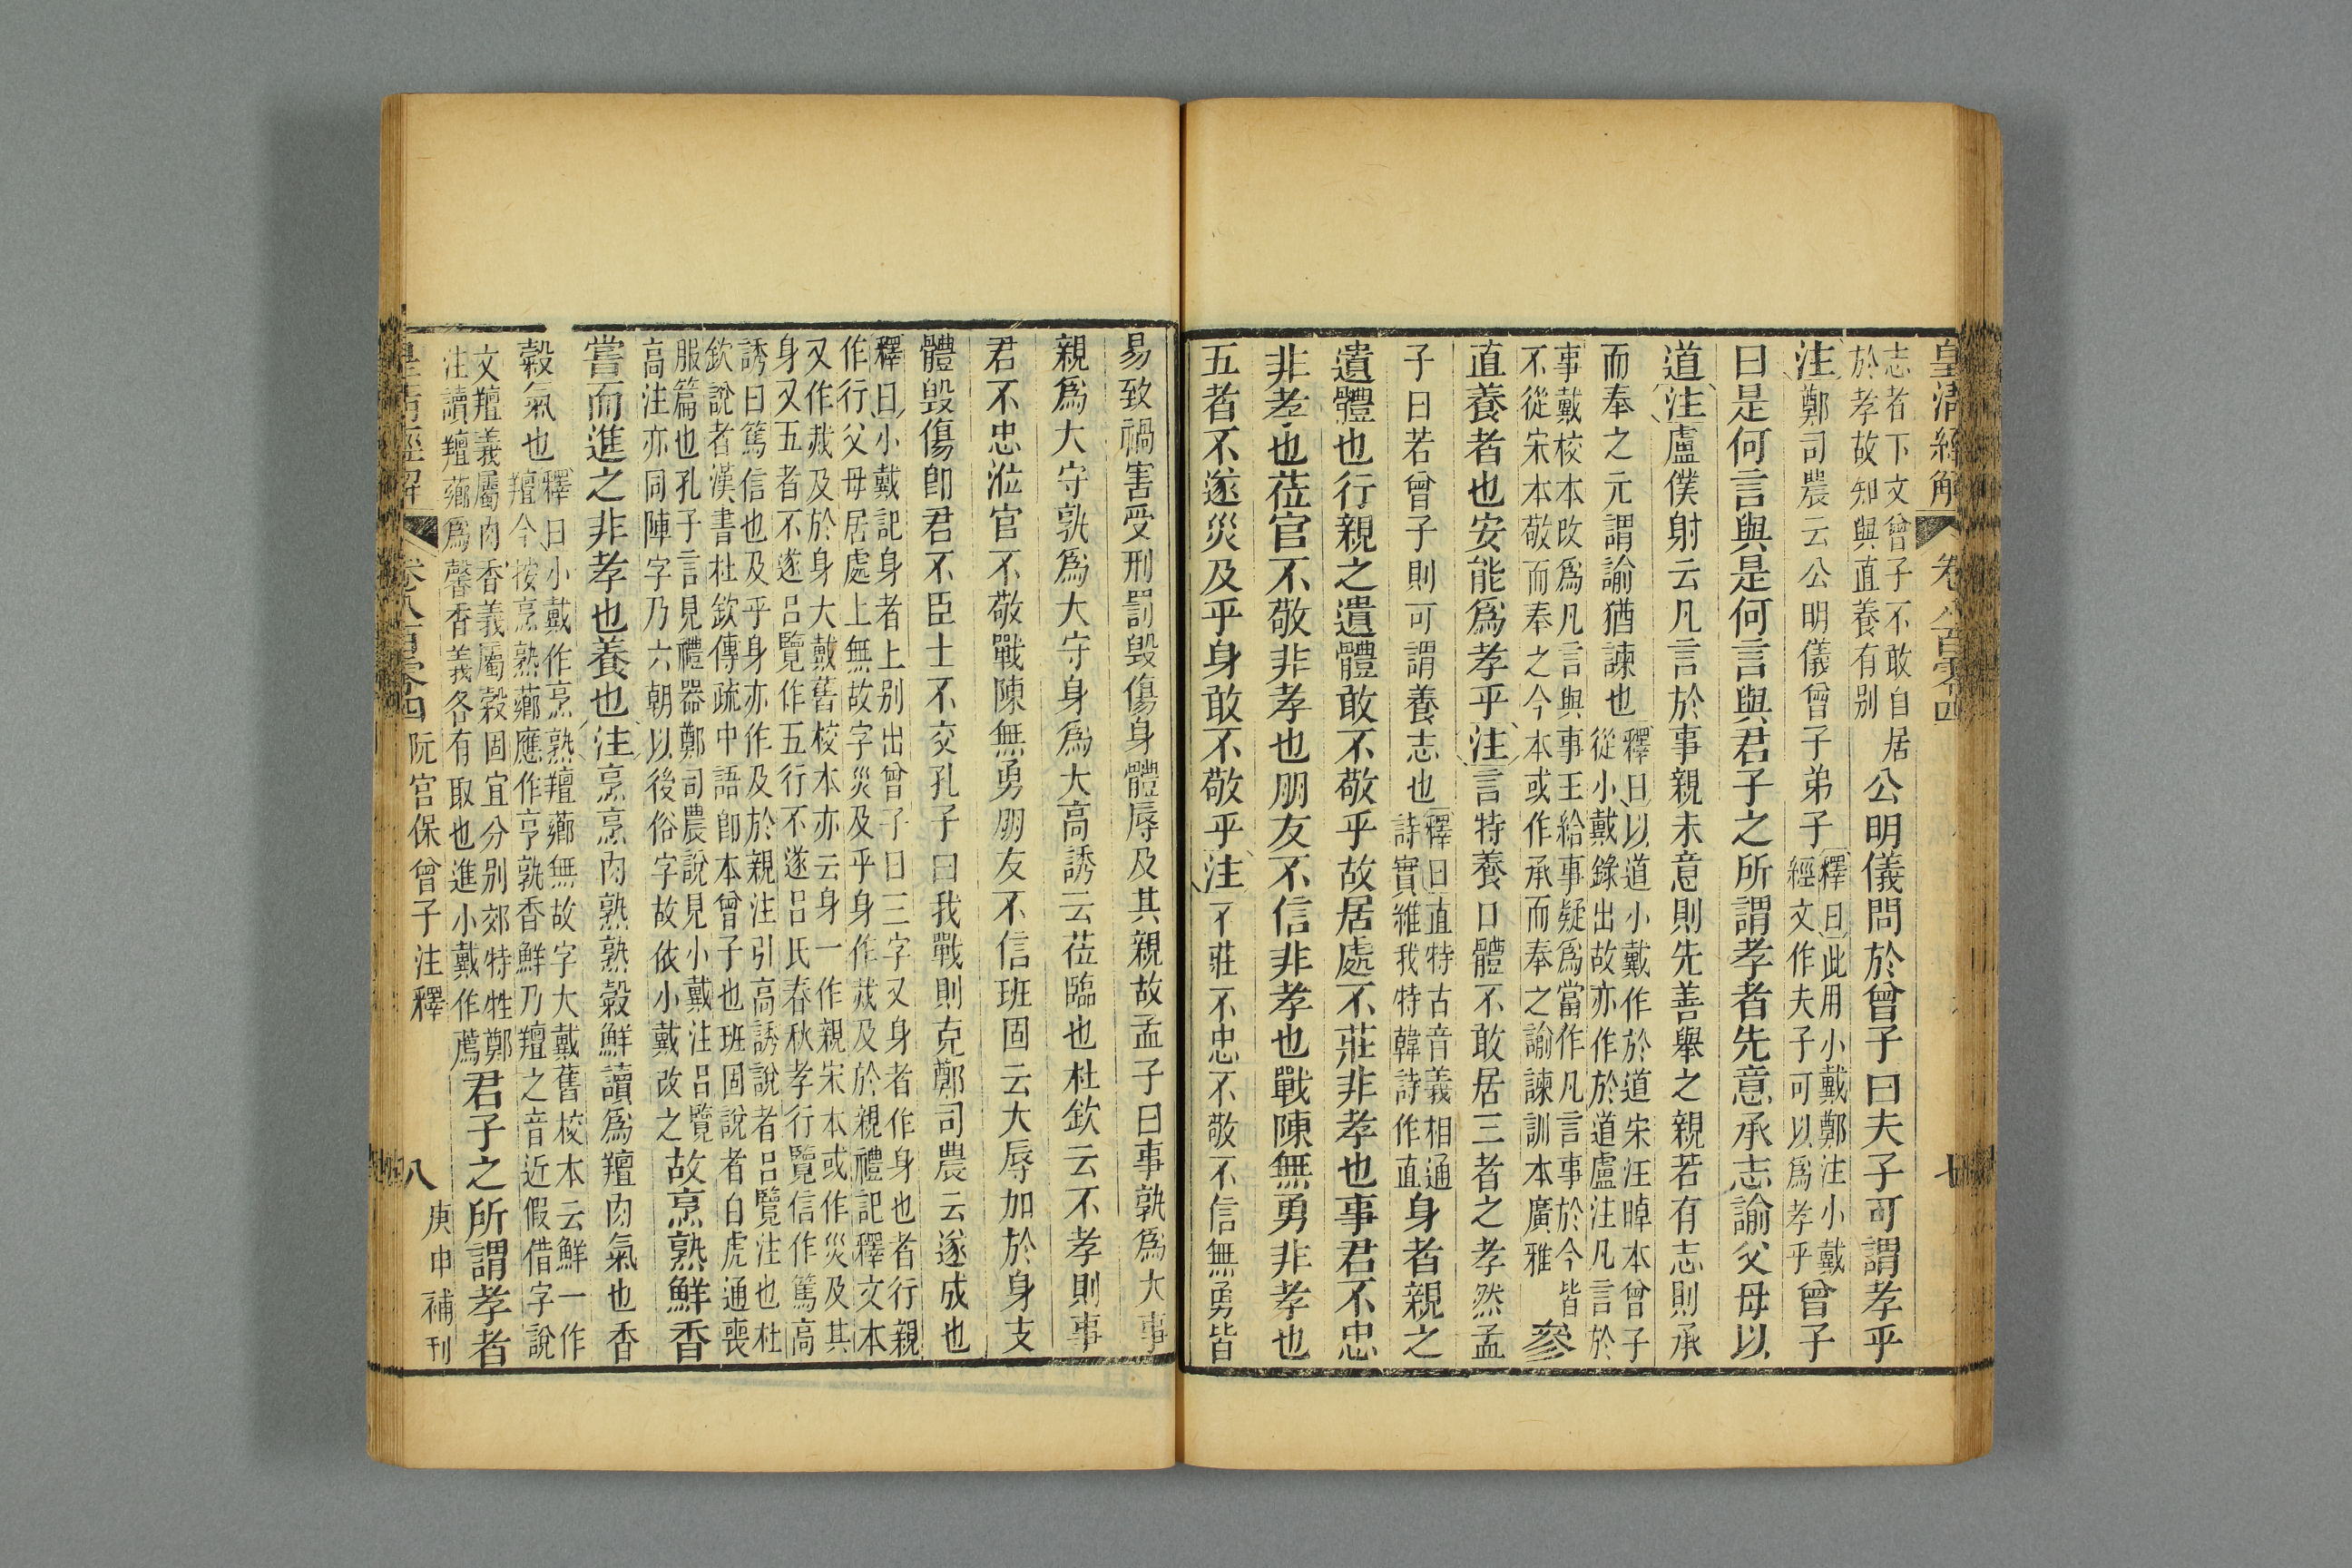 皇清經解 卷八百零四
志者下文曾子不敢自居
於孝故知與直養有別
公明儀問於曾子曰夫子可謂孝乎
注鄭司農云公明儀曾子弟子
釋曰此用小戴鄭注小戴
經文作夫子可以爲孝乎
曾子
曰是何言與是何言與君子之所謂孝者先意承志諭父母以
道注盧僕射云凡言於事親未意則先善舉之親若有志則承
而奉之元謂諭猶諫也
釋曰以道小戴作於道宋汪晫本曾子
從小戴錄出故亦作於道盧注凡言於
事戴校本改爲凡言與事王給事疑爲當作凡言事於今皆
不從宋本敬而奉之今本或作承而奉之諭諫訓本廣雅
參
直養者也安能爲孝乎注言特養口體不敢居三者之孝然孟
子曰若曾子則可謂養志也
釋曰直特古音義相通
詩實維我特韓詩作直
身者親之
遺體也行親之遺體敢不敬乎故居處不莊非孝也事君不忠
非孝也莅官不敬非孝也朋友不信非孝也戰陳無勇非孝也
五者不遂災及乎身敢不敬乎注不莊不忠不敬不信無勇皆
易致禍害受刑罰毀傷身體辱及其親故孟子曰事孰爲大事
親爲大守孰爲大守身爲大高誘云莅臨也杜欽云不孝則事
君不忠涖官不敬戰陳無勇朋友不信班固云大辱加於身支
體毀傷卽君不臣士不交孔子曰我戰則克鄭司農云遂成也
釋曰小戴記身者上別出曾子曰三字又身者作身也者行親
作行父母居處上無故字災及乎身作烖及於親禮記釋文本
又作烖及於身大戴舊校本亦云身一作親宋本或作災及其
身又五者不遂呂覽作五行不遂呂氏春秋孝行覽信作篤高
誘曰篤信也及乎身亦作及於親注引高誘說者呂覽注也杜
欽說者漢書杜欽傳疏中語卽本曾子也班固說者白虎通喪
服篇也孔子言見禮器鄭司農說見小戴注呂覽
高注亦同陣字乃六朝以後俗字故依小戴改之
故烹熟鮮香
嘗而進之非孝也養也注烹烹肉熟熟穀鮮讀爲羶肉氣也香
穀氣也
釋曰小戴作烹熟羶薌無故字大戴舊校本云鮮一作
羶今按烹熟薌應作亨孰香鮮乃羶之音近假借字說
文羶義屬肉香義屬穀固宜分別郊特牲鄭
注讀羶薌爲馨香義各有取也進小戴作薦
君子之所謂孝者
皇清經解 卷八百零四 阮宮保曾子注釋 八 庚申補刊